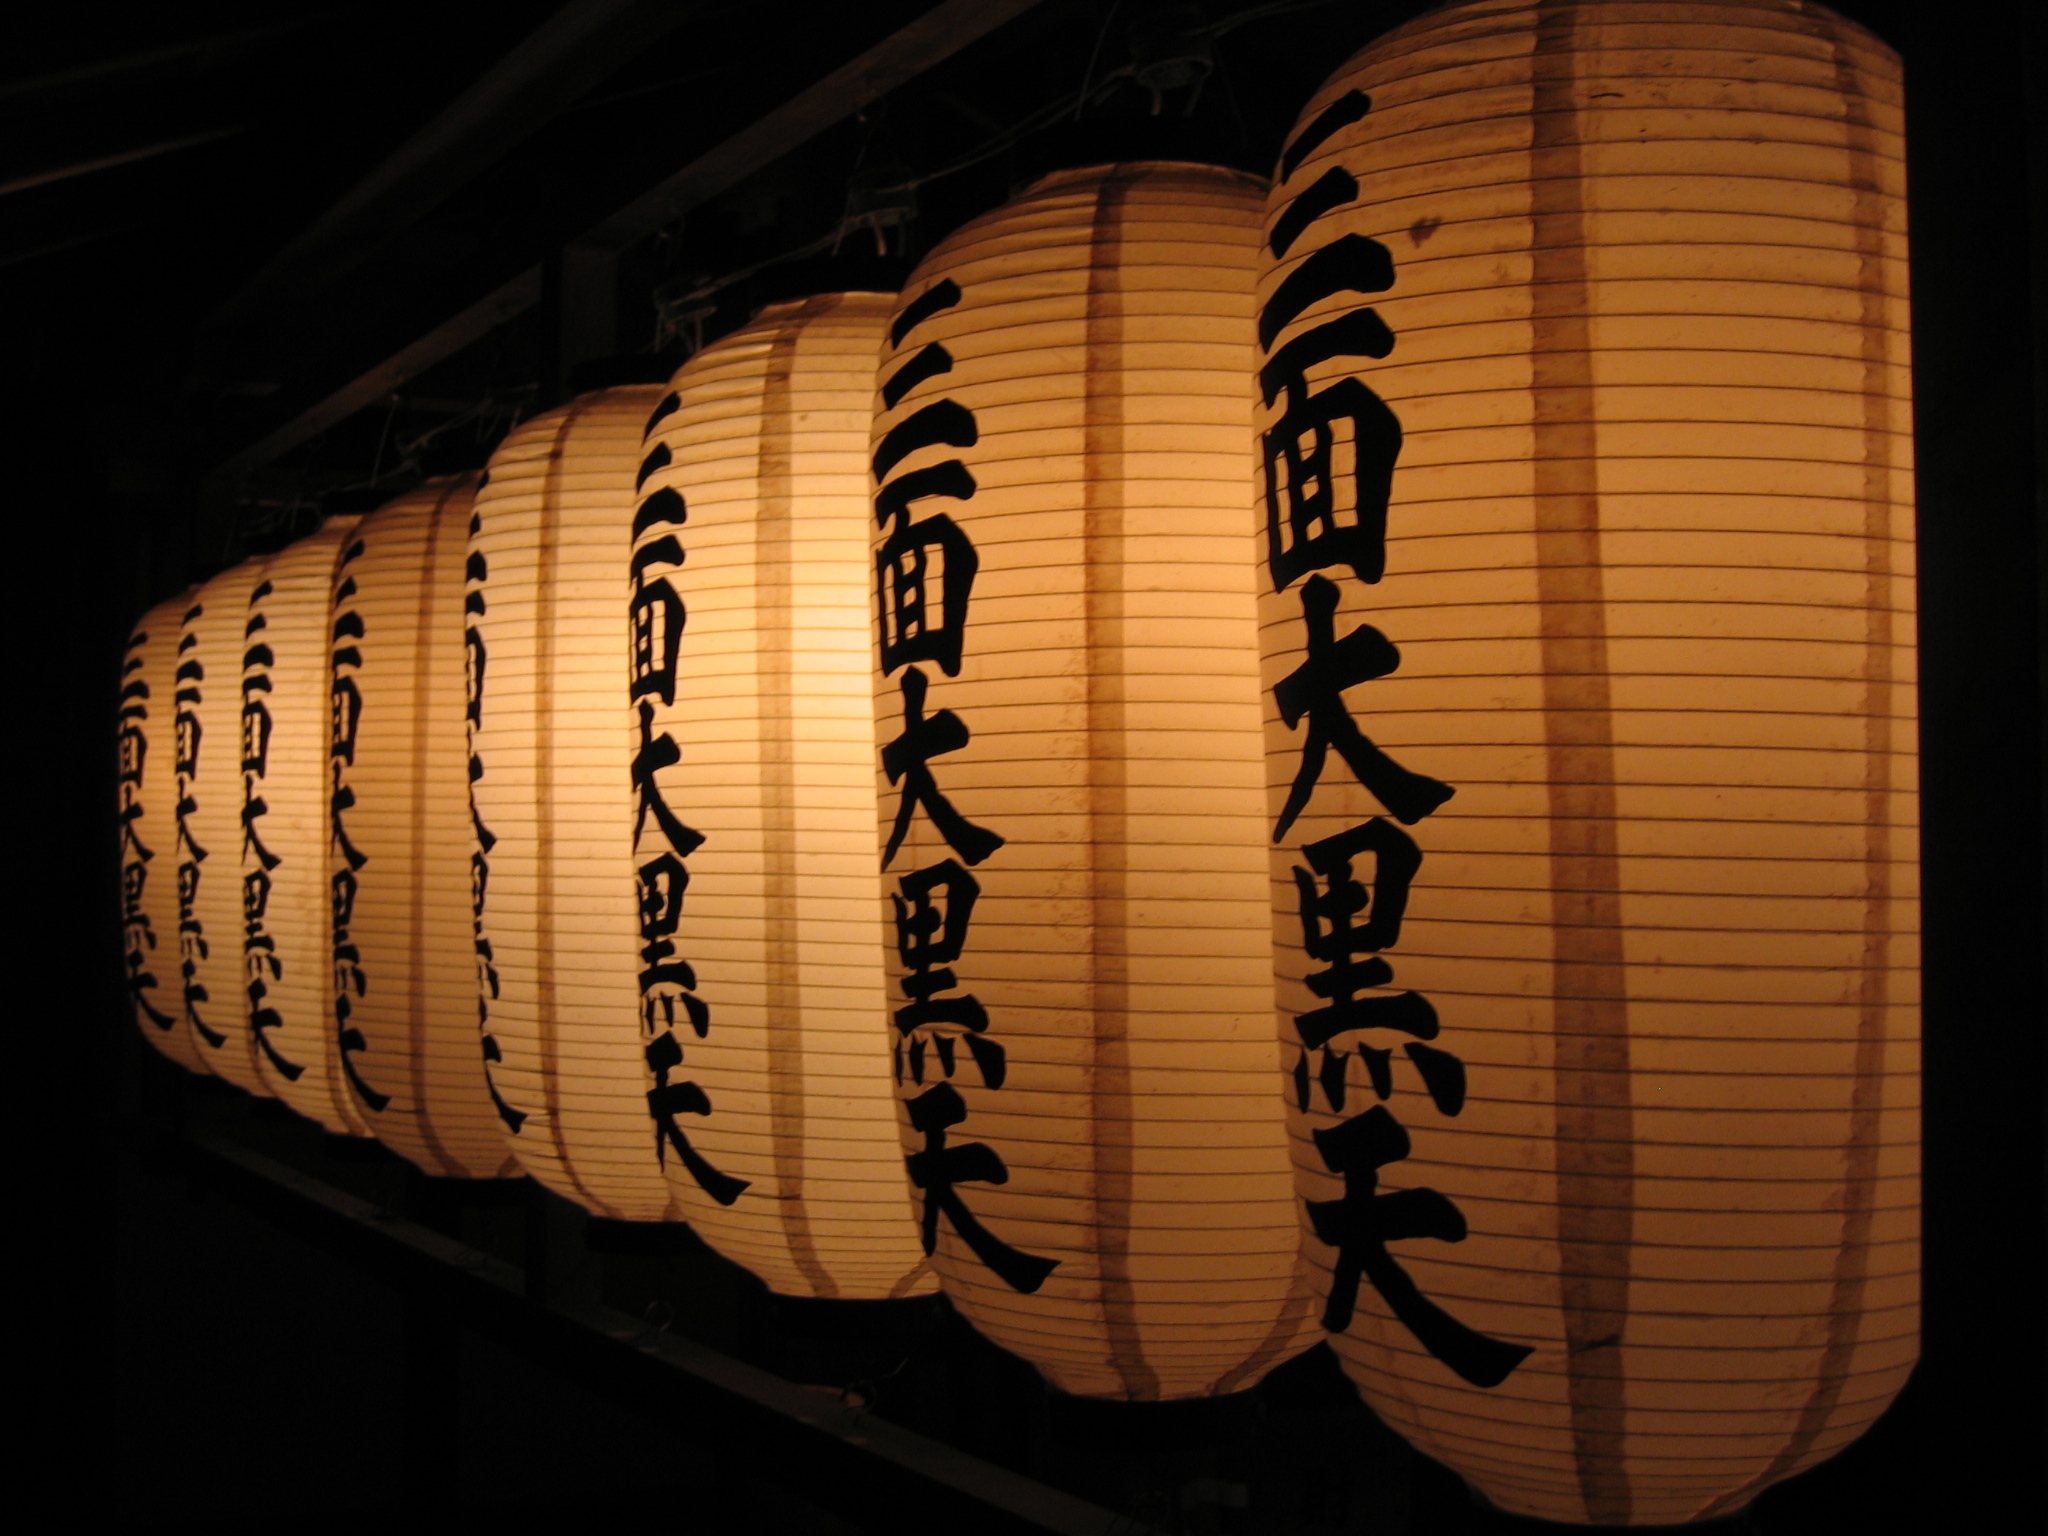 三面大黒天
三面大黒天
三面大黒天
三面大黒天
三面大黒天
三面大黒天
三面大黒天
三面大黒天